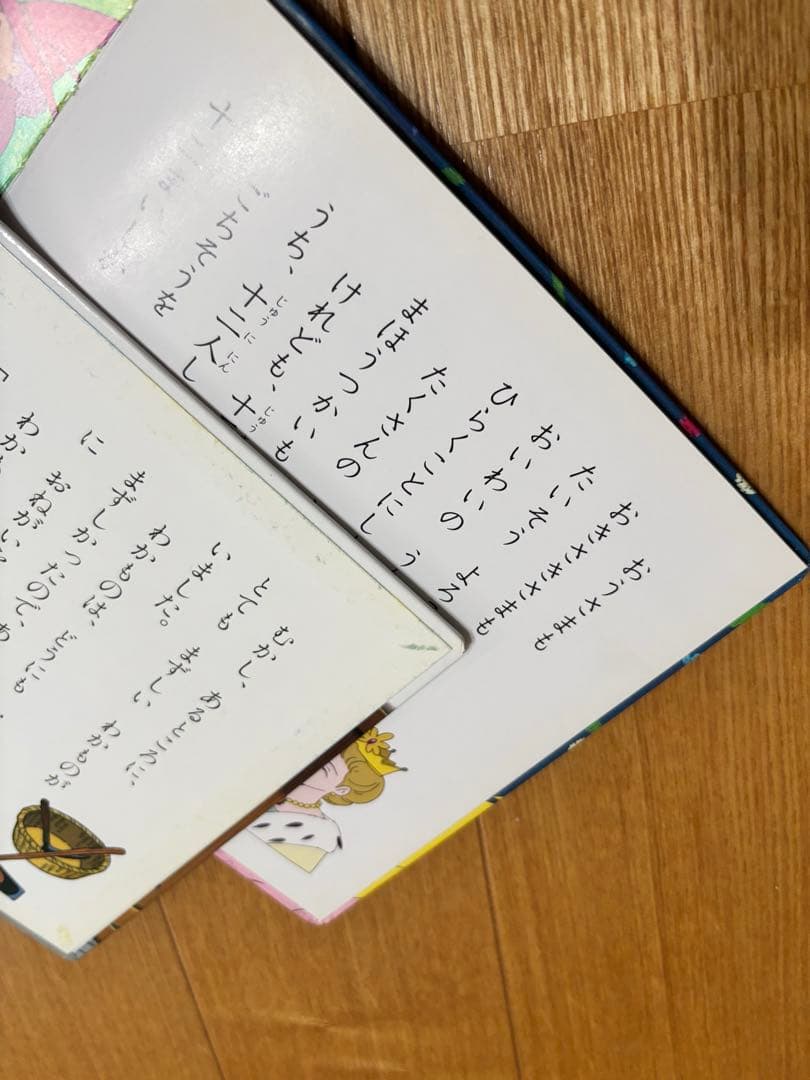 おうさまも
おきさきさまも
たいそう よろ
おいわいの う
ひらくことにし
たくさんの
まほうつかいも
けれども、十
じゅう
うち、十二人し
じゅうににん
ごちそうを
むかし、あるところに、
とても まずしい わかものが
いました。
わかものは、どうにも
まずしかったので、あ
に おねがい
わか
「